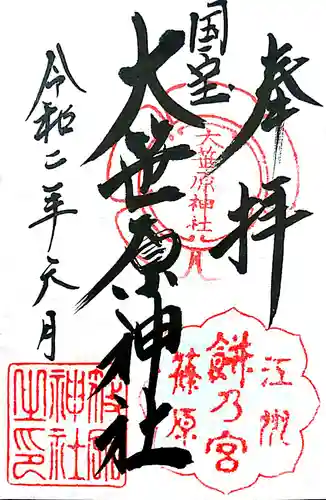 奉拝
国宝
大笹原神社
令和二年 月
大笹原神社
江州
餅乃宮
篠原
神社
之印